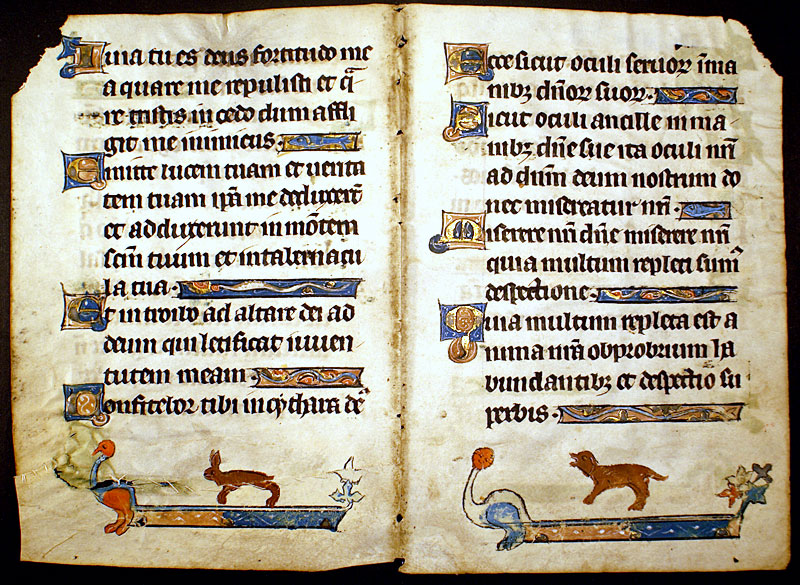 Quia tu es deus fortitudo me
a quare me repulisti et q̄
re tristis incedo dum affli
git me inimicus.
Emitte lucem tuam et uerita
tem tuam ip̄a me deduxer̄t
et adduxerunt in mōtem
sc̄m tuum et in tabernacu
la tua.
Et introibo ad altare dei ad
deum qui letificat iuuen
tutem meam.
Confitebor tibi in cythara dē
Ecce sicut oculi seruoꝝ ī ma
nibꝫ dn̄oꝝ suoꝝ.
Sicut oculi ancille in ma
nibꝫ dn̄e sue ita oculi nr̄i
ad dn̄m deum nostrum do
nec misereatur nr̄i.
Miserere nr̄i dn̄e miserere nr̄i
quia multum repleti sumꝰ
despectione.
Quia multum repleta est a
nima nr̄a obprobrium ha
bundantibꝫ et despectio su
perbis.